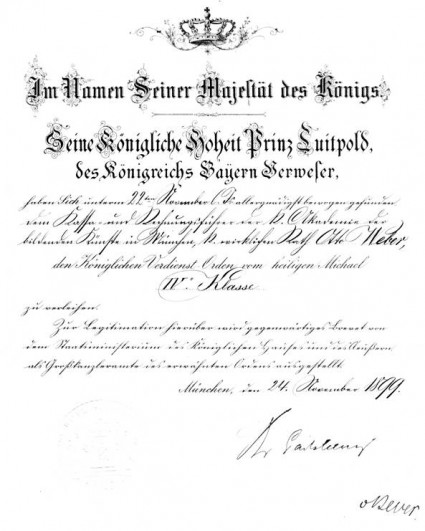 Im Namen Seiner Majestät des Königs.
Seine Königliche Hoheit Prinz Luitpold,
des Königreichs Bayern Verweser,
haben Sich unterm 22ten November l. Js. allergnädigst bewogen gefunden
dem Kassa- und Rechnungsführer der K. Akademie der
bildenden Künste in München, K. wirklichen Rath Otto Weber,
den Königlichen Verdienst Orden vom heiligen Michael
IVr. Klasse
zu verleihen.
Zur Legitimation hierüber wird gegenwärtiges Brevet von
dem Staatsministerium des Königlichen Hauses und des Äußern
als Großkanzleramte des erwähnten Ordens ausgestellt.
München, den 24. November 1899.